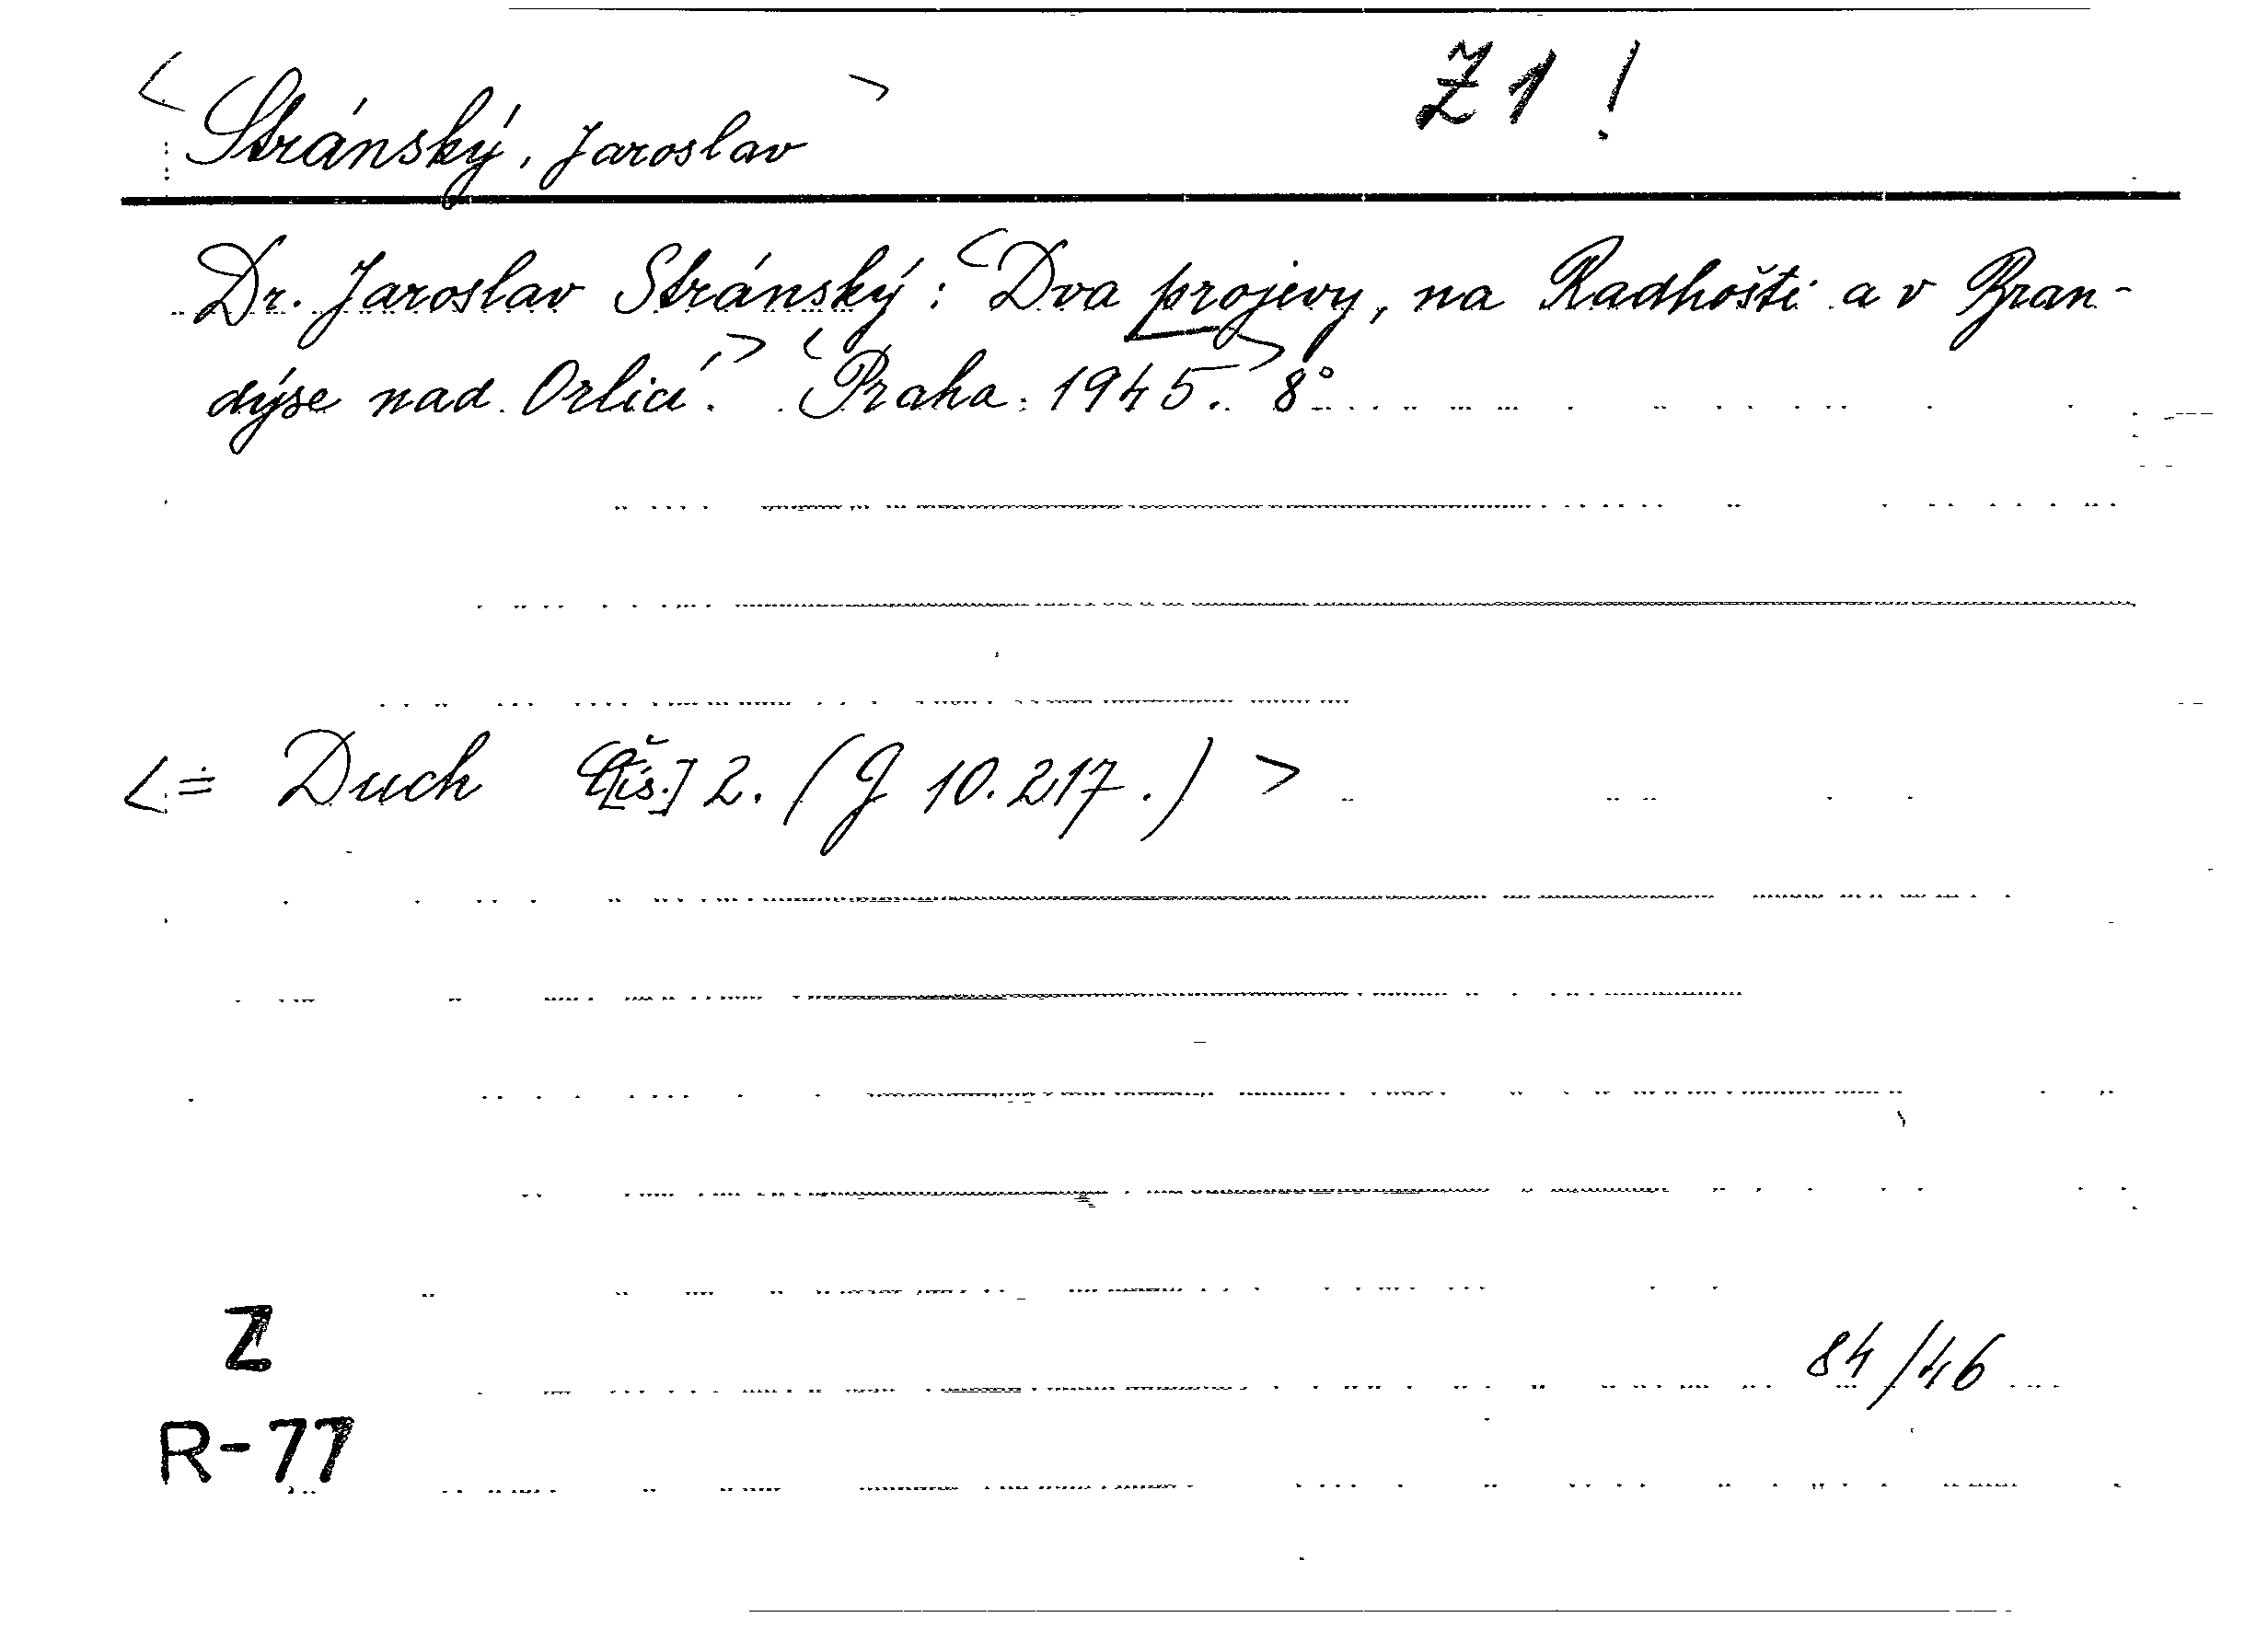 Z 1 !
< Stránský, Jaroslav >
Dr. Jaroslav Stránský: <Dva projevy, na Radhošti a v Bran-
dýse nad Orlicí.> <Praha 1945.> 8°
<= Duch Č[ís.] 2. (J 10.217.) >
Z
84/46
R-77